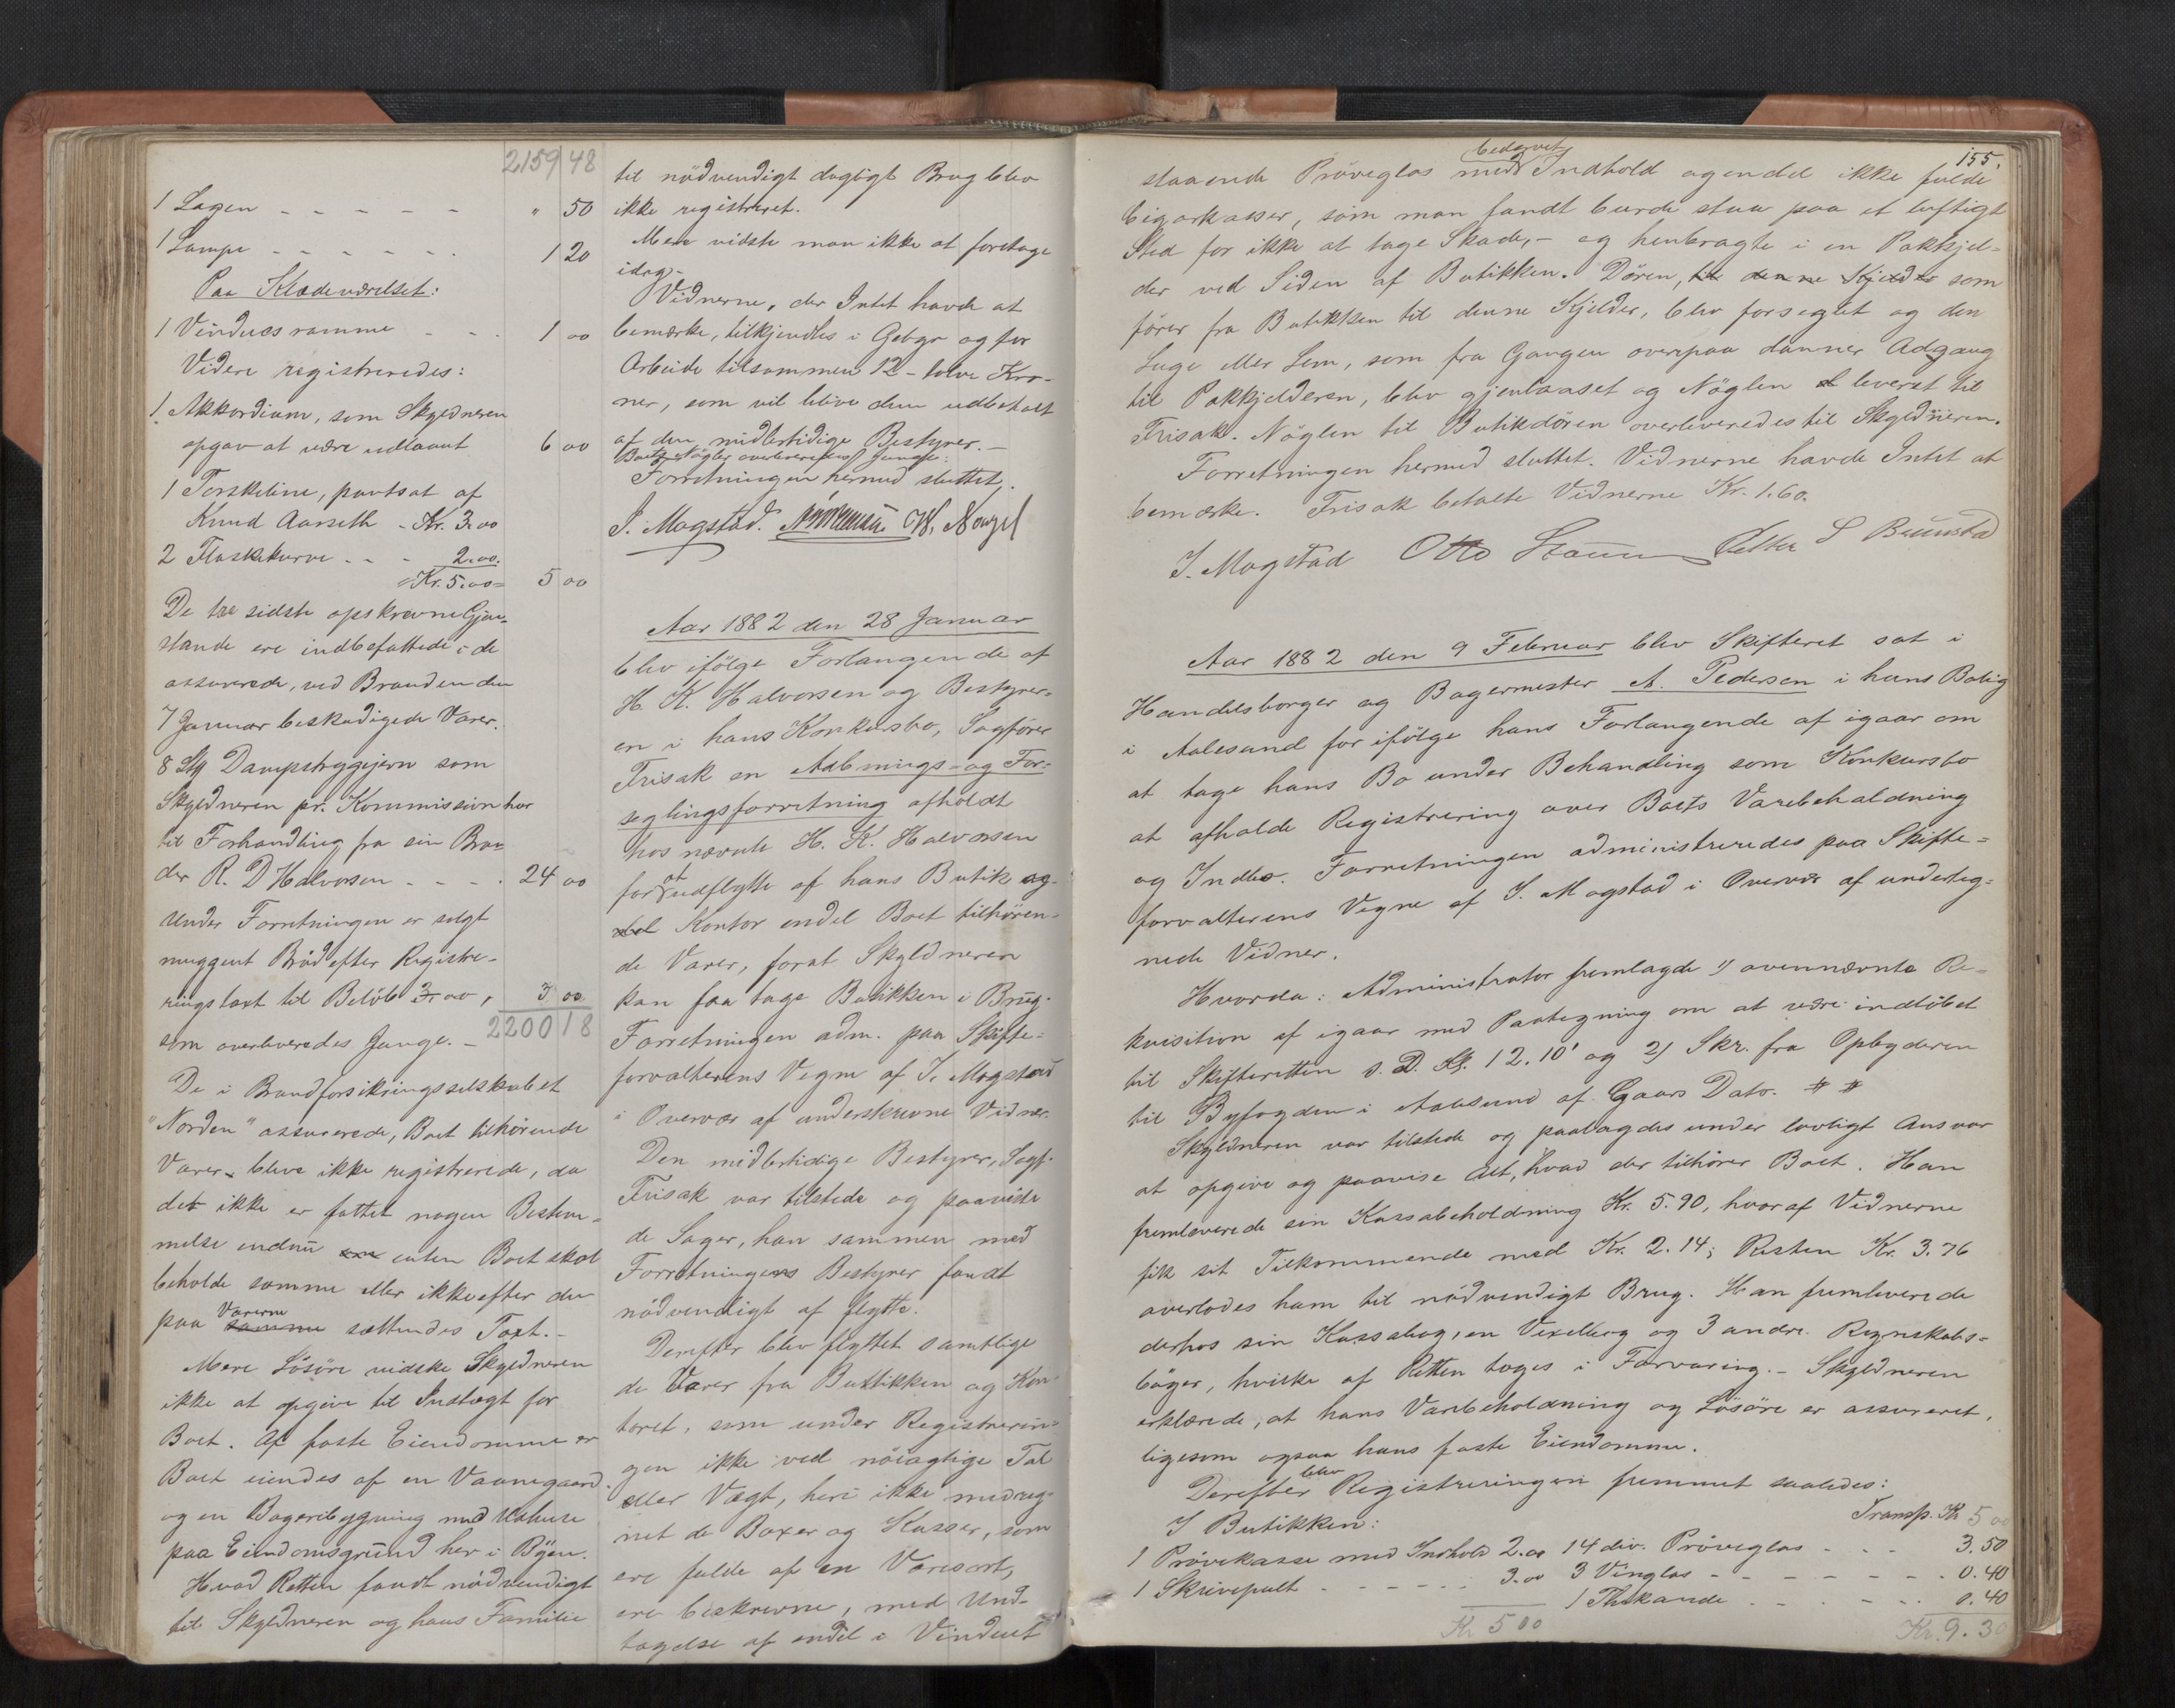 2159 48
1 Lagen - - - - - " 50
1 Lampe - - - - - - 1 20
Paa Klædeværelset:
1 Vinduesramme - - - 1 00
Videre registreredes:
1 Akkordium, som Skyldneren
opgav at være udlaant 6 00
1 Torskeline, pantsat af
Knud Aarseth - Kr. 3.00
2 Flaskekurve - - - 2.00.
Kr. 5.00 = 5 00
De tre sidste opskrevne Gjen-
stande ere indbefattede i de
assurerede, ved Branden den
7 Januar beskadigede Varer.
8 Stk Dampstrygejern som
Skyldneren pr. Kommission har
til Forhandling fra sin Bro-
der R. D Halvorsen - - - - 24 00
Under Forretningen er solgt
muggent Bröd efter Registre-
ringstaxt til Belöb 3.00, 3 00
som overleveredes Junge. - 2200 18
De i Brandforsikringsselskabet
"Norden" assurerede, Boet tilhörende
Varer bleve ikke registrerede, da
det ikke er fattet nogen Bestem-
melse endnu om enten Boet skal
beholde samme eller ikke efter den
paa samme Varerne sættendes Taxt. -
Mere Lösöre vidste Skyldneren
ikke at opgive til Indtægt for
Boet. Af faste Eiendomme er
Boet eiendes af en Vaanegaard
og en Bageribygning med Udhuse
paa Eiendomsgrund her i Byen.
Hvad Retten fandt nödvendigt
til Skyldneren og hans Familie
til nödvendigt dagligt Brug blev
ikke registreret.
Mere vidste man ikke at foretage
idag. -
Vidnerne, der Intet havde at
bemærke, tilkjendtes i Gebyr og for
Arbeide tilsammen 12 - tolv Kro-
ner, som vil blive dem udbetalt
af den midlertidige Bestyrer. -
Boets Nøgler overleveredes Junge.
Forretningen hermed sluttet.
J. Mogstad. W. Nagel
Aar 1882 den 28 Januar
blev ifölge Forlangende af
H. K. Halvorsen og Bestyrer-
en i hans Konkursbo, Sagförer
Frisak en Aabnings- og For-
seglingsforretning afholdt
hos nævnte H. K. Halvorsen
for at udflytte af hans Butik og
Kontor endel Boet tilhören-
de Varer, forat Skyldneren
kan faa tage Butikken i Brug.
Forretningen adm. paa Skifte-
forvalterens Vegne af J. Mogstad
i Overvær af underskrevne Vidner.
Den midlertidige Bestyrer, Sagf.
Frisak var tilstede og paaviste
de Sager, han sammen med
Forretningens Bestyrer fandt
nödvendigt af flytte.
Derefter blev flyttet samtlige
de Varer fra Buttikken og Kon-
toret, som under Registrerin-
gen ikke ved nöiagtige Tal
eller Vægt, heri ikke medreg-
net de Boxer og Kasser, som
ere fulde af en Varesort,
ere beskrevne, med Und-
tagelse af endel i Vinduet
155.
staaende Pröveglas med bedærvet Indhold og endel ikke fulde
Cigarkasser, som man fandt burde staa paa et luftigt
Sted for ikke at tage Skade, - og henbragte i en Pakkjel-
der ved Siden af Butikken. Dören, til denne Kjelder som
förer fra Butikken til denne Kjelder, blev forseglet og den
Luge eller Lem, som fra Gangen ovenpaa danner Adgang
til Pakkjelderen, blev gjenlaaset og Nöglen leveret til
Frisak. Nöglen til Butikdören overleveredes til Skyldneren.
Forretningen hermed sluttet. Vidnerne havde Intet at
bemærke. Frisak betalte Vidnerne Kr. 1.60.
J. Mogstad Otto Petter S Brunstad
Aar 1882 den 9 Februar blev Skifteret sat i
Handelsborger og Bagermester A. Pedersen i hans Bolig
i Aalesund for ifölge hans Forlangende af igaar om
at tage hans Bo under Behandling som Konkursbo
at afholde Registrering over Boets Varebeholdning
og Indbo. Forretningen administreredes paa Skifte-
forvalterens Vegne af J. Mogstad i Overvær af underteg-
nede Vidner.
Hvorda: Administrator fremlagde 1) ovennævnte Re-
kvisition af igaar med Paategning om at være indlöbet
til Skifteretten s. D. Kl. 12.10' og 2) Skr. fra Opbyderen
til Byfogden i Aalesund af Gaars Dato. # #
Skyldneren var tilstede og paalagdes under lovligt Ansvar
at opgive og paavise Alt, hvad der tilhörer Boet. Han
fremleverede sin Kassabeholdning Kr. 5.90, hvoraf Vidnerne
fik sit Tilkommende med Kr. 2.14; Resten Kr. 3.76
overlodes ham til nödvendigt Brug. Han fremleverede
derhos sin Kassabog, en Vexelbog og 3 andre Regnskabs-
böger, hvilke af Retten toges i Forvaring. - Skyldneren
erklærede, at hans Varebeholdning og Lösöre er assureret,
ligesom ogsaa hans faste Eiendomme.
Derefter blev Registreringen fremmet saaledes:
I Butikken: Transp. Kr 5 00
1 Prövekasse med Indhold 2.00 14 div. Pröveglas - - - 3.50
1 Skrivepult - - - - - - 3.00 3 Vinglas - - - - - - - 0.40
1 Thekande - - - - - 0.40
Kr 5 00 Kr. 9.30